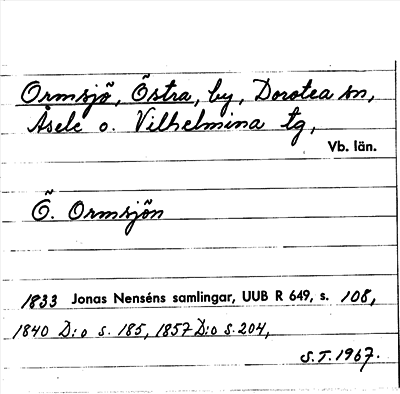 Ormsjö, Östra, by, Dorotea sn,
Åsele o. Vilhelmina tg,
Vb. län.
Ö. Ormsjön
1833 Jonas Nenséns samlingar, UUB R 649, s. 108,
1840 D:o s. 185, 1857 D:o s. 204,
S.T. 1967.